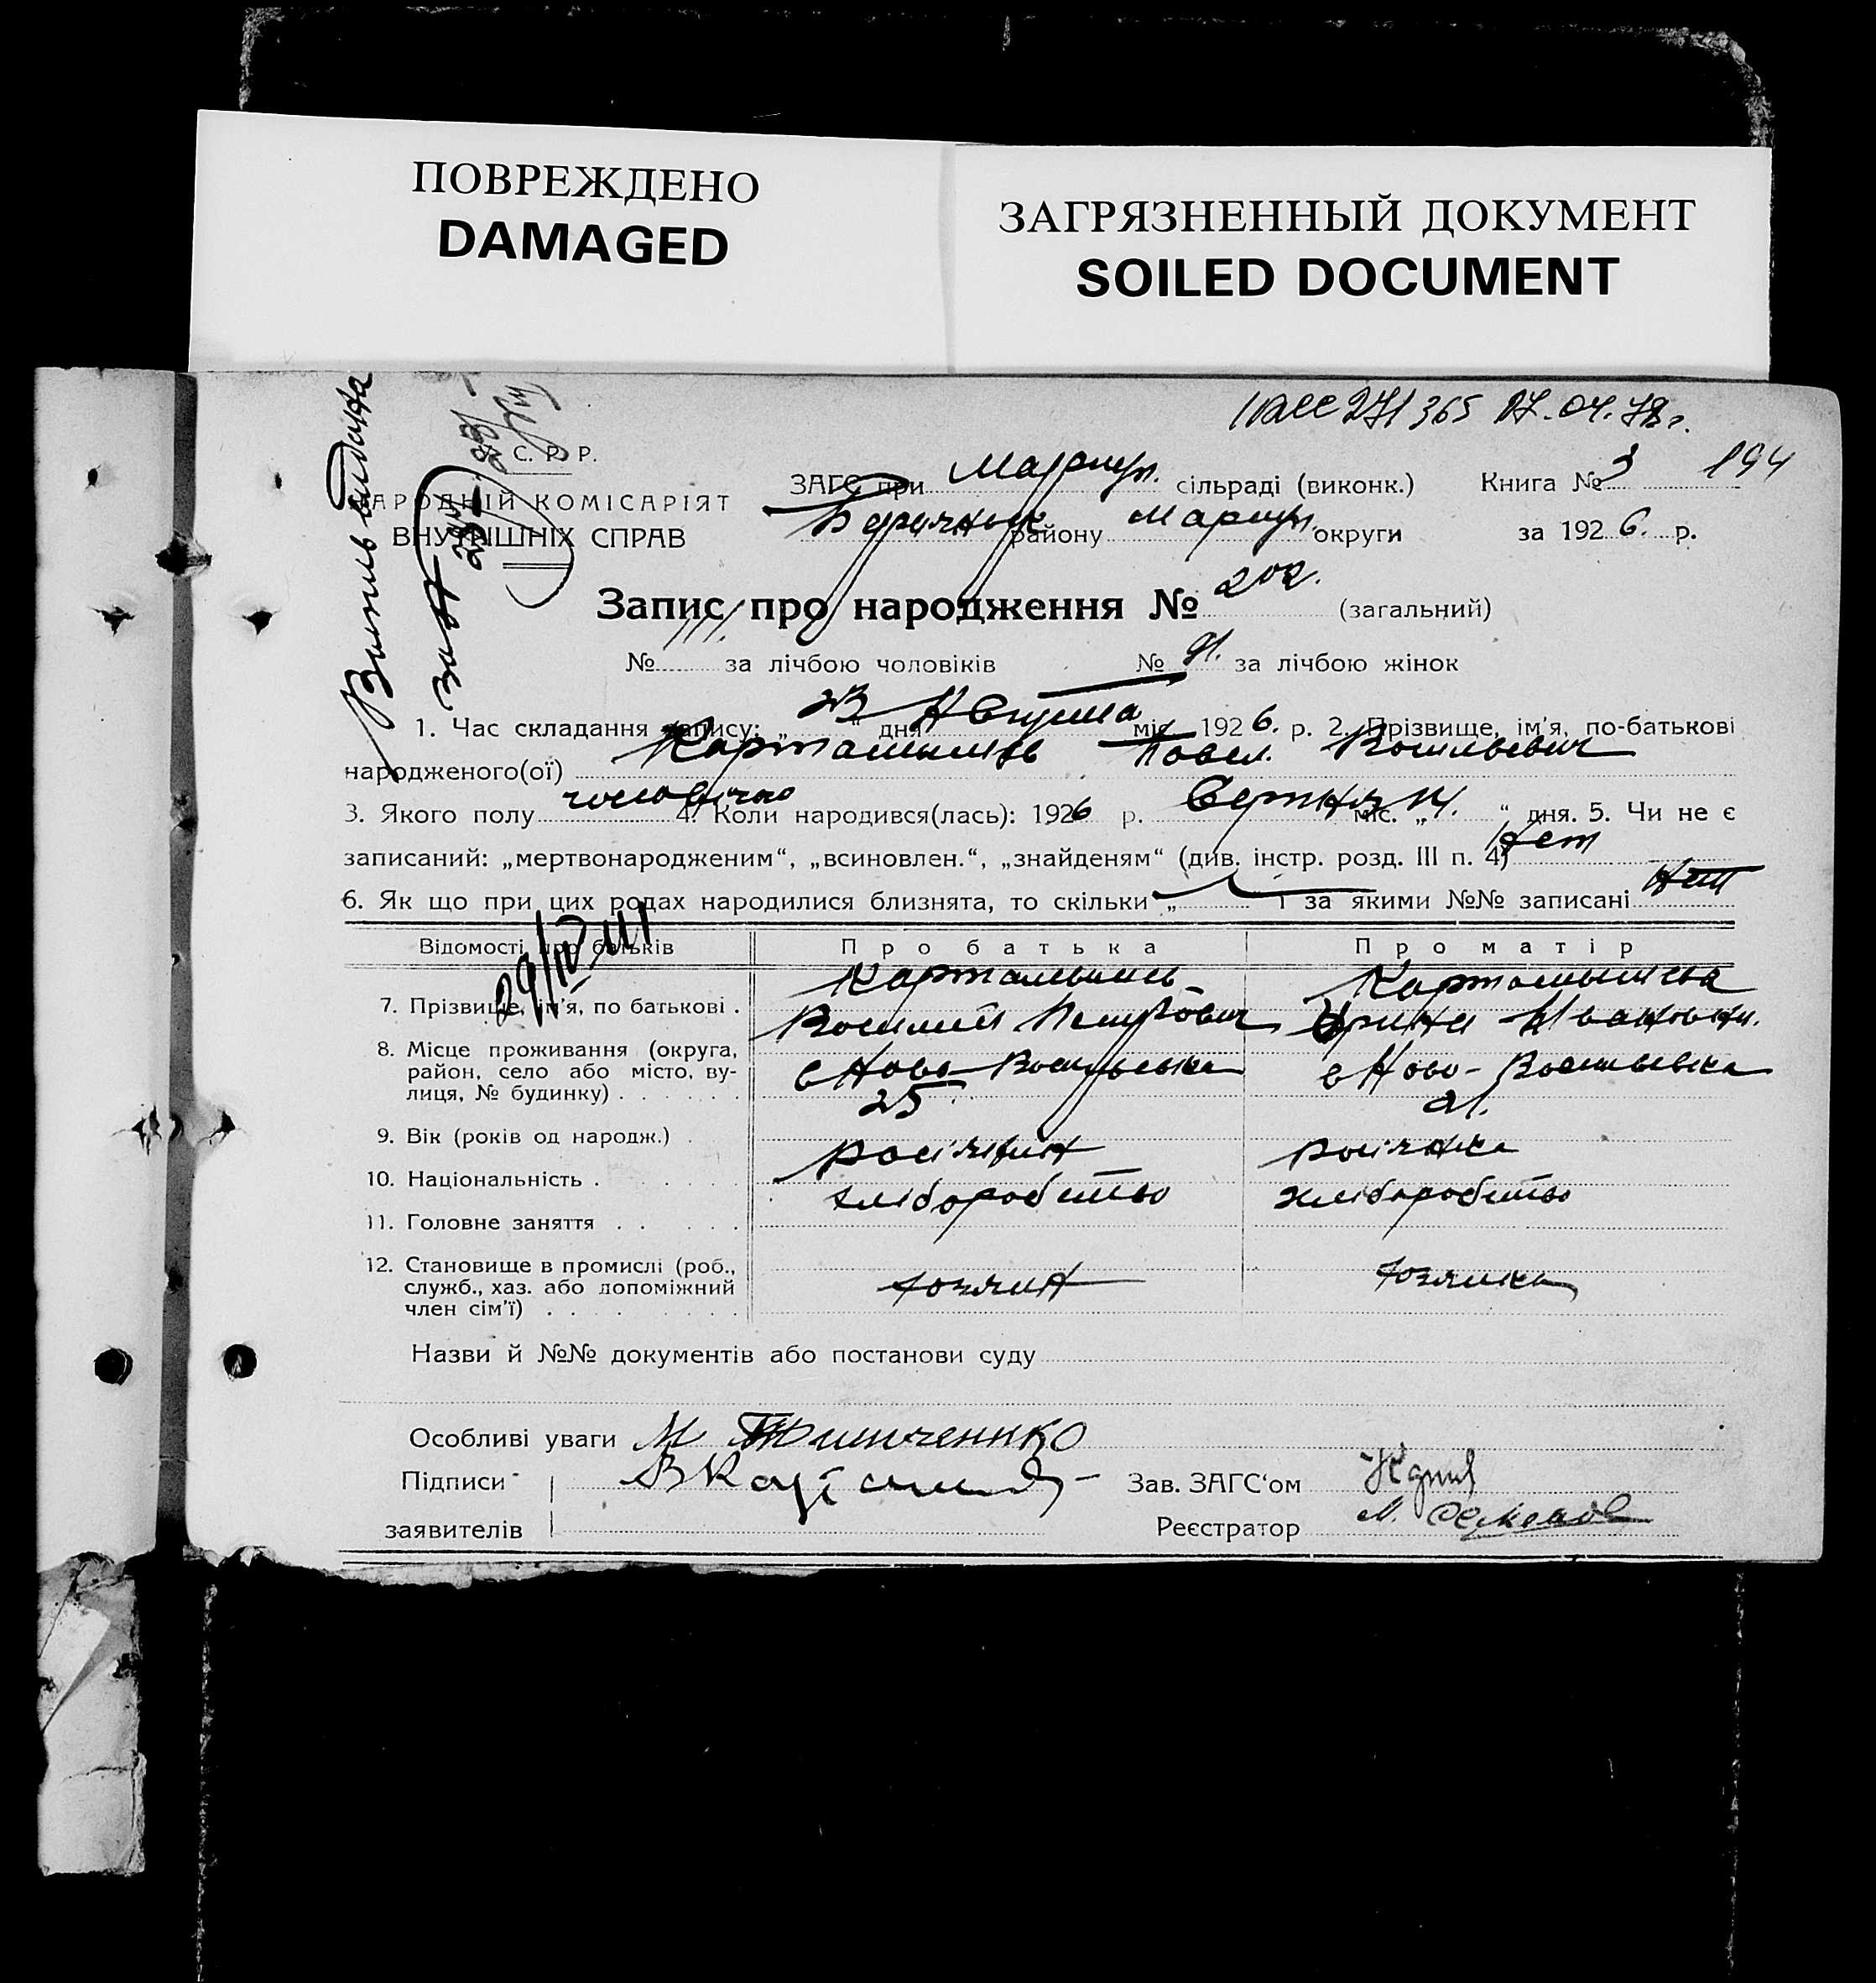 ПОВРЕЖДЕНО
DAMAGED
ЗАГРЯЗНЕННЫЙ ДОКУМЕНТ
SOILED DOCUMENT
271365 17.04.78 г.
С. Р. Р.
НАРОДНІЙ КОМІСАРІЯТ
ВНУТРІШНІХ СПРАВ
ЗАГС при Мариуп. сільраді (виконк.) Книга № 3 194
району Мариуп. округи за 1926. р.
Запис про народження № 202. (загальний)
№ 111. за лічбою чоловіків № 91. за лічбою жінок
1. Час складання запису: „23“ дня Августа міс. 1926. р. 2. Прізвище, ім'я, по-батькові
народженого(ої) Карташишев Павел. Васильевич
3. Якого полу 4. Коли народився(лась): 1926 р. Серпня міс. „14.“ дня. 5. Чи не є
записаний: „мертвонародженим“, „всиновлен.“, „знайденям“ (див. інстр. розд. III п. 4) Нет
6. Як що при цих родах народилися близнята, то скільки „ і за якими №№ записані нет
Відомості про батьків Про батька Про матір
7. Прізвище, ім'я, по батькові . Василий Петрович Ирина Ивановна.
8. Місце проживання (округа, район, село або місто, вулиця, № будинку) . . . . . . с Ново-Васильевка с Ново-Васильевка
9. Вік (років од народж.) . 25 21.
10. Національність . росіянин росіянка
11. Головне заняття . . . . . хліборобство хліборобство
12. Становище в промислі (роб., служб., хаз. або допоміжний член сім'ї) . . . . . . . хозяин хозяйка
Назви й №№ документів або постанови суду
Особливі уваги М
Підписи В Карташ
Зав. ЗАГС'ом
заявителів
Реєстратор М.